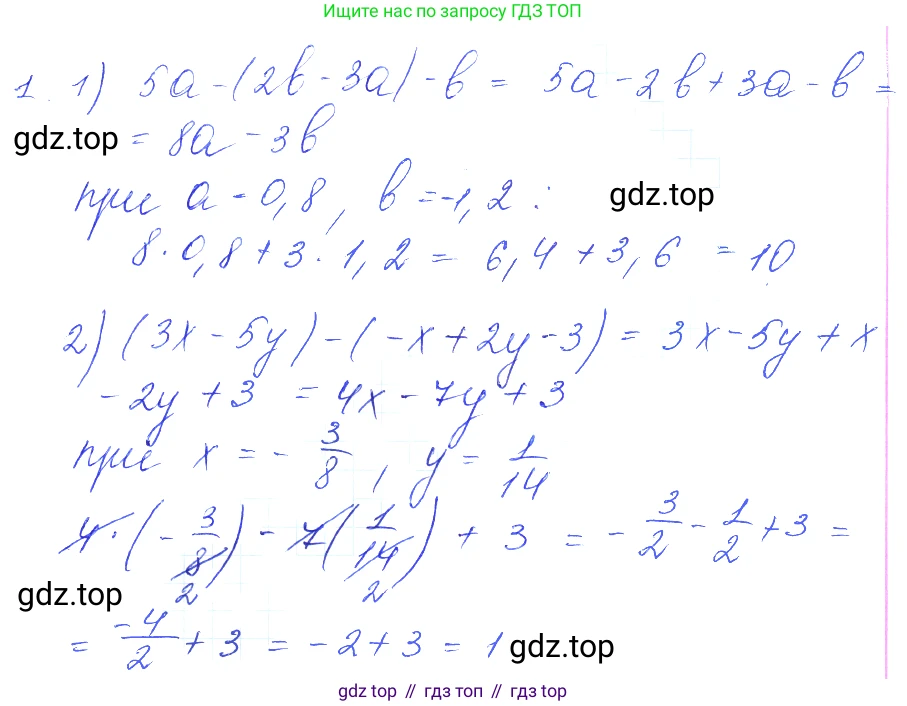 Ищите нас по запросу ГДЗ ТОП
1. 1) 5a - (2b - 3a) - b = 5a - 2b + 3a - b =
gdz.top = 8a - 3b
при a = 0,8, b = -1,2 : gdz.top
8 · 0,8 + 3 · 1,2 = 6,4 + 3,6 = 10
2) (3x - 5y) - (-x + 2y - 3) = 3x - 5y + x
- 2y + 3 = 4x - 7y + 3
при x = - 3/8, y = 1/14
4 · (- 3/8) - 7 (1/14) + 3 = - 3/2 - 1/2 + 3 =
2 2
gdz.top
= -4/2 + 3 = -2 + 3 = 1 gdz.top
gdz top // гдз топ // gdz top